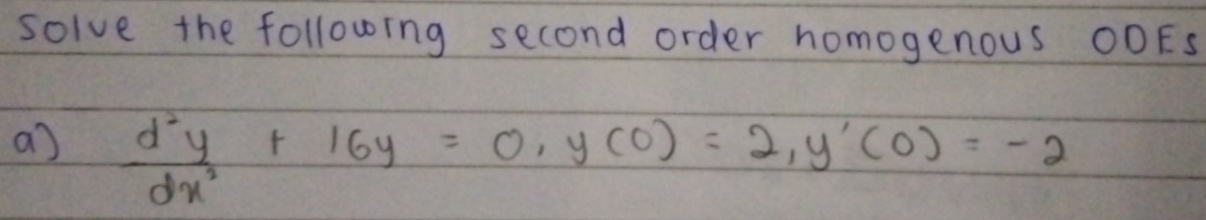 solve the following second order homogenous ODEs
a) d²y/dx² + 16y = 0, y(0) = 2, y'(0) = -2